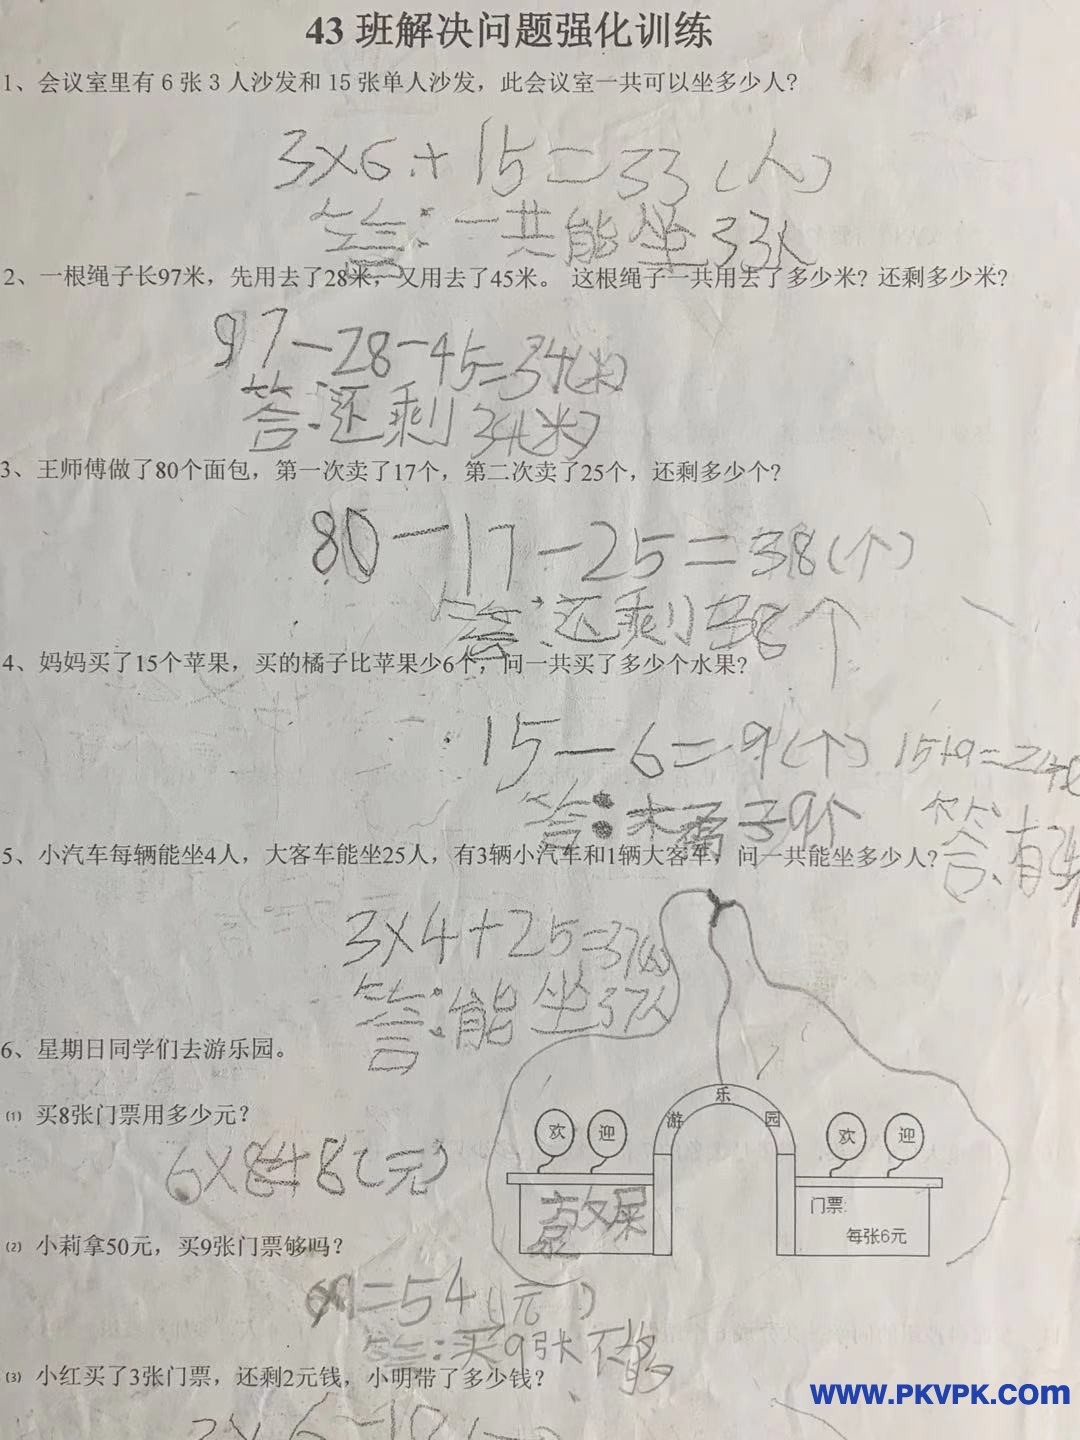 43 班解决问题强化训练
1、会议室里有 6 张 3 人沙发和 15 张单人沙发，此会议室一共可以坐多少人？
3×6+15=33(人)
答:一共能坐33人
2、一根绳子长97米，先用去了28米，又用去了45米。 这根绳子一共用去了多少米？还剩多少米？
97-28-45=34(米)
答:还剩34(米)
3、王师傅做了80个面包，第一次卖了17个，第二次卖了25个，还剩多少个？
80-17-25=38(个)
答:还剩38个
4、妈妈买了15个苹果，买的橘子比苹果少6个，问一共买了多少个水果？
15-6=9(个) 15+9=24
答:橘子9个 答:有
5、小汽车每辆能坐4人，大客车能坐25人，有3辆小汽车和1辆大客车，问一共能坐多少人？
3×4+25=37(人)
答:能坐37人
6、星期日同学们去游乐园。
游乐园
欢迎 欢迎
⑴ 买8张门票用多少元？
6×8=48(元)
放屎
门票:
每张6元
⑵ 小莉拿50元，买9张门票够吗？
=54(元)
答:买9张不够
⑶ 小红买了3张门票，还剩2元钱，小明带了多少钱？
3×6=18
www.PKVPK.com